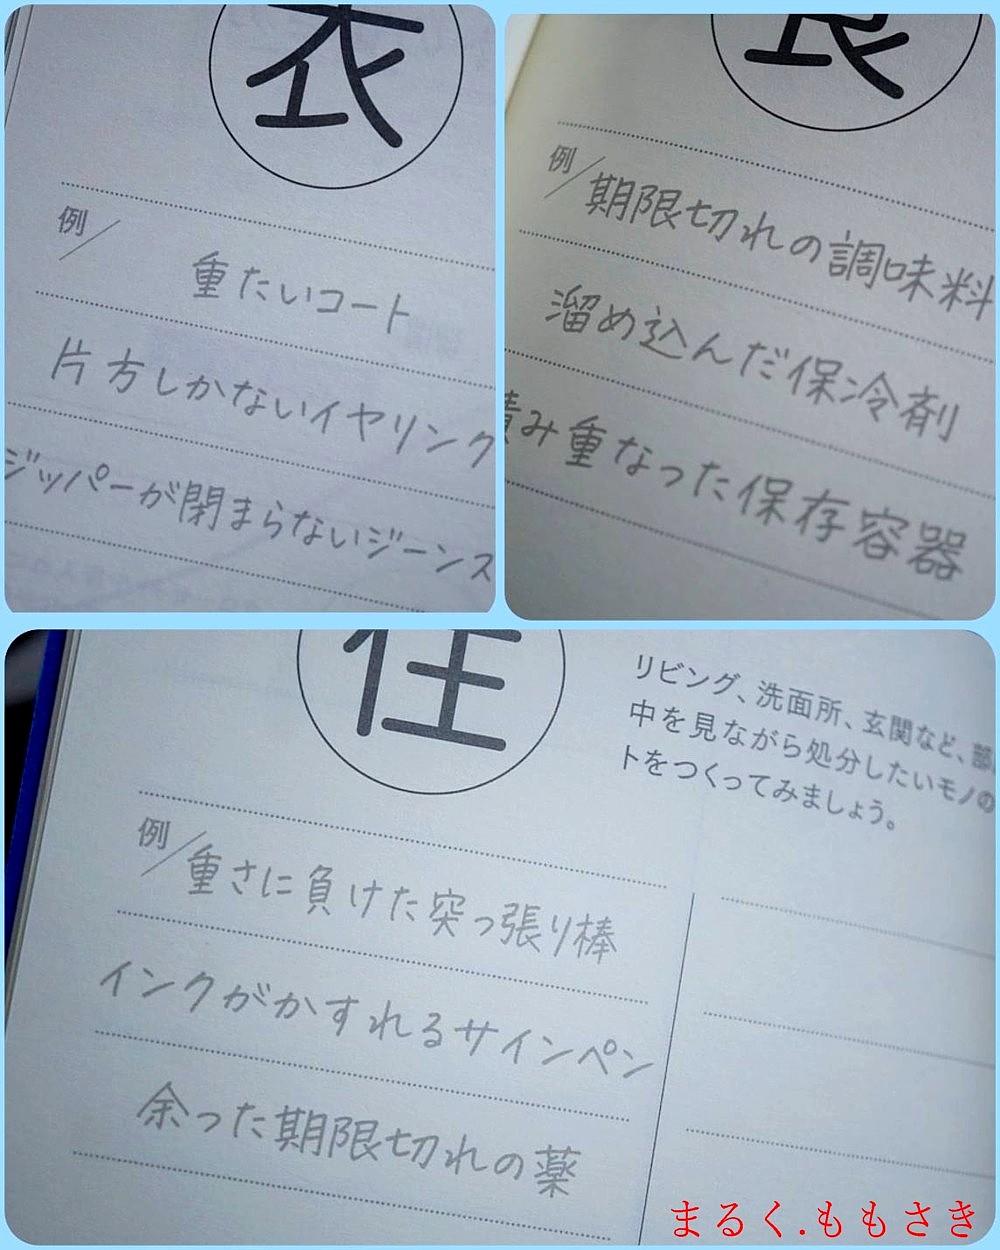 衣
例/
重たいコート
片方しかないイヤリング
ジッパーが閉まらないジーンズ
食
例/期限切れの調味料
溜め込んだ保冷剤
積み重なった保存容器
住
リビング、洗面所、玄関など、部
中を見ながら処分したいモノの
トをつくってみましょう。
例/重さに負けた突っ張り棒
インクがかすれるサインペン
余った期限切れの薬
まるく.ももさき